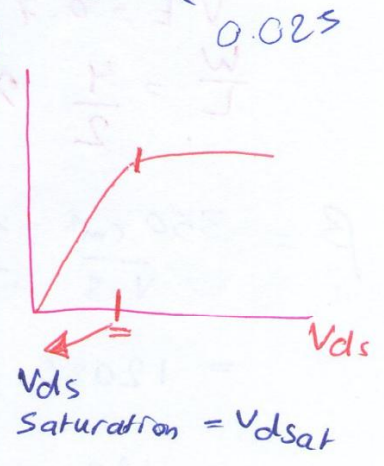 0.025
Vds
Vds
Saturation = Vdsat